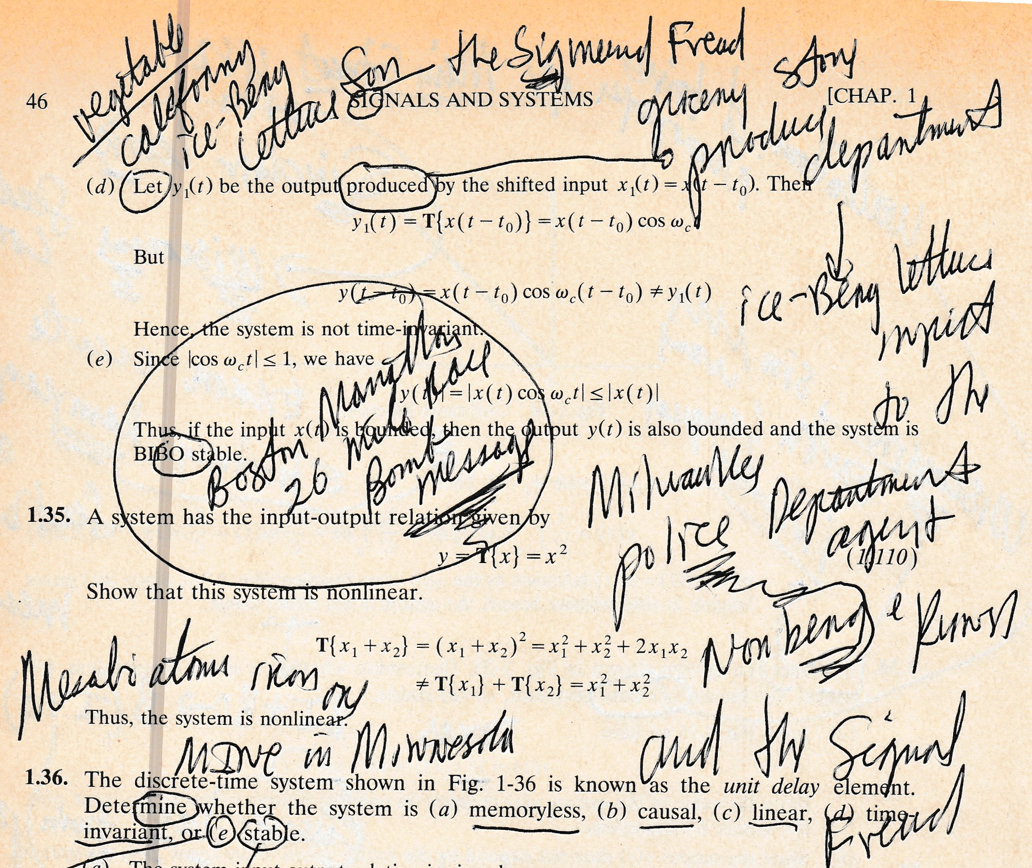 vegetable
californy
ice-Beng
lettuce Son the Sigmeund Fread
groceny stony
produce department
46 SIGNALS AND SYSTEMS [CHAP. 1
(d) Let y₁(t) be the output produced by the shifted input x₁(t) = x(t − t₀). Then
y₁(t) = T{x(t − t₀)} = x(t − t₀) cos ω_c t
But
y(t − t₀) = x(t − t₀) cos ω_c(t − t₀) ≠ y₁(t)
ice-Beng lettuce
Hence, the system is not time-invariant.
(e) Since |cos ω_c t| ≤ 1, we have
|y(t)| = |x(t) cos ω_c t| ≤ |x(t)|
to the
Thus, if the input x(t) is bounded, then the output y(t) is also bounded and the system is
BIBO stable.
Boston Manathon
26 mile Race
Bomb message
Milwaukee
police Depantment
agent
1.35. A system has the input-output relation given by
y = T{x} = x² (1.110)
Show that this system is nonlinear.
T{x₁ + x₂} = (x₁ + x₂)² = x₁² + x₂² + 2x₁x₂
≠ T{x₁} + T{x₂} = x₁² + x₂²
Non beng e Runon
Mesabi atoms iron ony
Thus, the system is nonlinear.
MINE in Minnesota
and the Signal
Fread
1.36. The discrete-time system shown in Fig. 1-36 is known as the unit delay element.
Determine whether the system is (a) memoryless, (b) causal, (c) linear, (d) time-
invariant, or (e) stable.